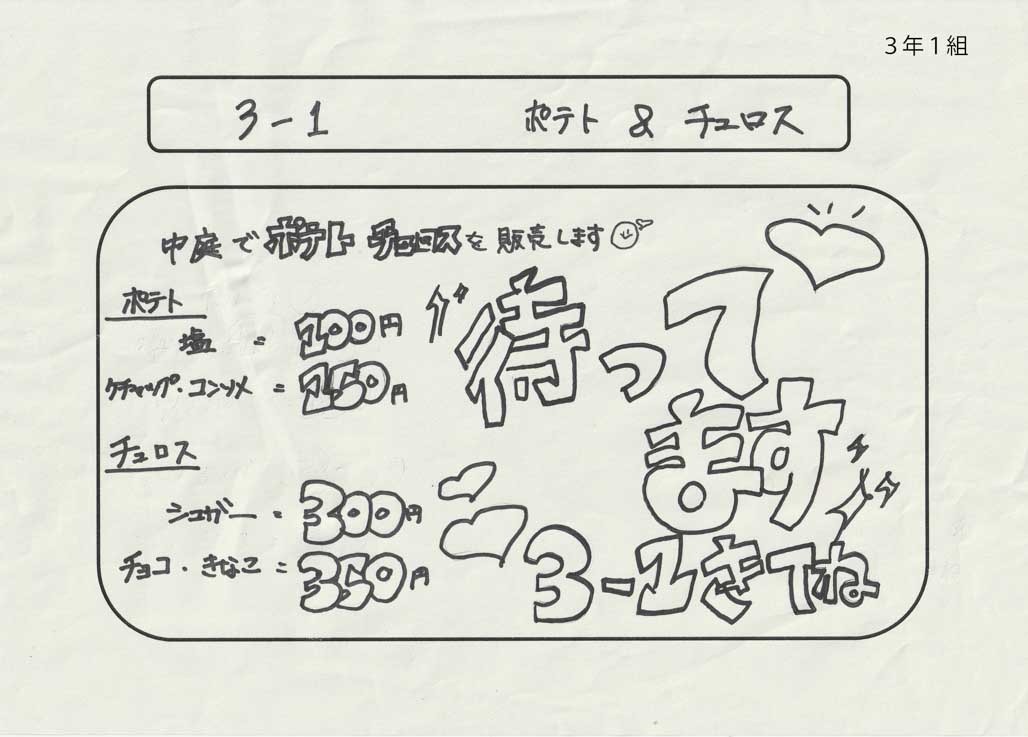 3年1組
3-1 ポテト & チュロス
中庭でポテト チュロスを販売します
ポテト
塩 = 100円
ケチャップ・コンソメ = 150円
チュロス
シュガー = 300円
チョコ・きなこ = 350円
待って
ます
3-1きてね